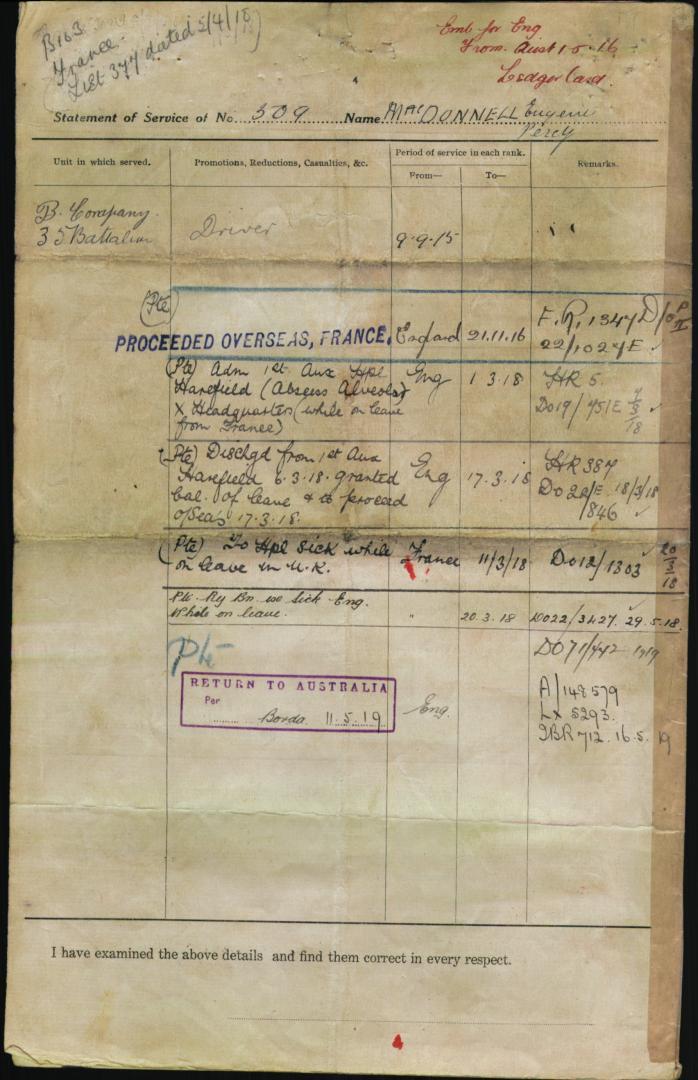 B163
France.
List 377 dated 5/4/18
Emb for Eng
From Aust 1-5-16
Ledger Card.
Statement of Service of No. 509 Name MacDONNELL Eugene
Percy
Unit in which served.
Promotions, Reductions, Casualties, &c.
Period of service in each rank.
From—
To—
Remarks.
B. Company
35 Battalion
Driver
9-9-15
(Pte)
PROCEEDED OVERSEAS, FRANCE. England 21.11.16
22/1027E
(Pte) Adm 1st Aux Hpl Eng 1 3.18 HR 5.
Harefield (Absess Alveolar)
X Headquarters (while on leave
from France)
Do19/451E 4/3/18
(Pte) Dischgd from 1st Aux Eng 17.3.18 HR 387
Harefield 6.3.18. granted
bal. of leave & to proceed
o/Seas 17.3.18.
Do 20/E 18/3/18
/846
(Pte) To Hpl Sick while France 11/3/18 Do12/1303 20/3/18
on leave in U.K.
Pte. Ry Bn ex Sick Eng.
Whole on leave. " 20.3.18 DO22/3427 29.5.18.
Pte
DO71/442 1919
RETURN TO AUSTRALIA
Per
Borda 11.5.19
Eng.
A/148579
Lx 5293.
IBR 712. 16.5.19
I have examined the above details and find them correct in every respect.
4